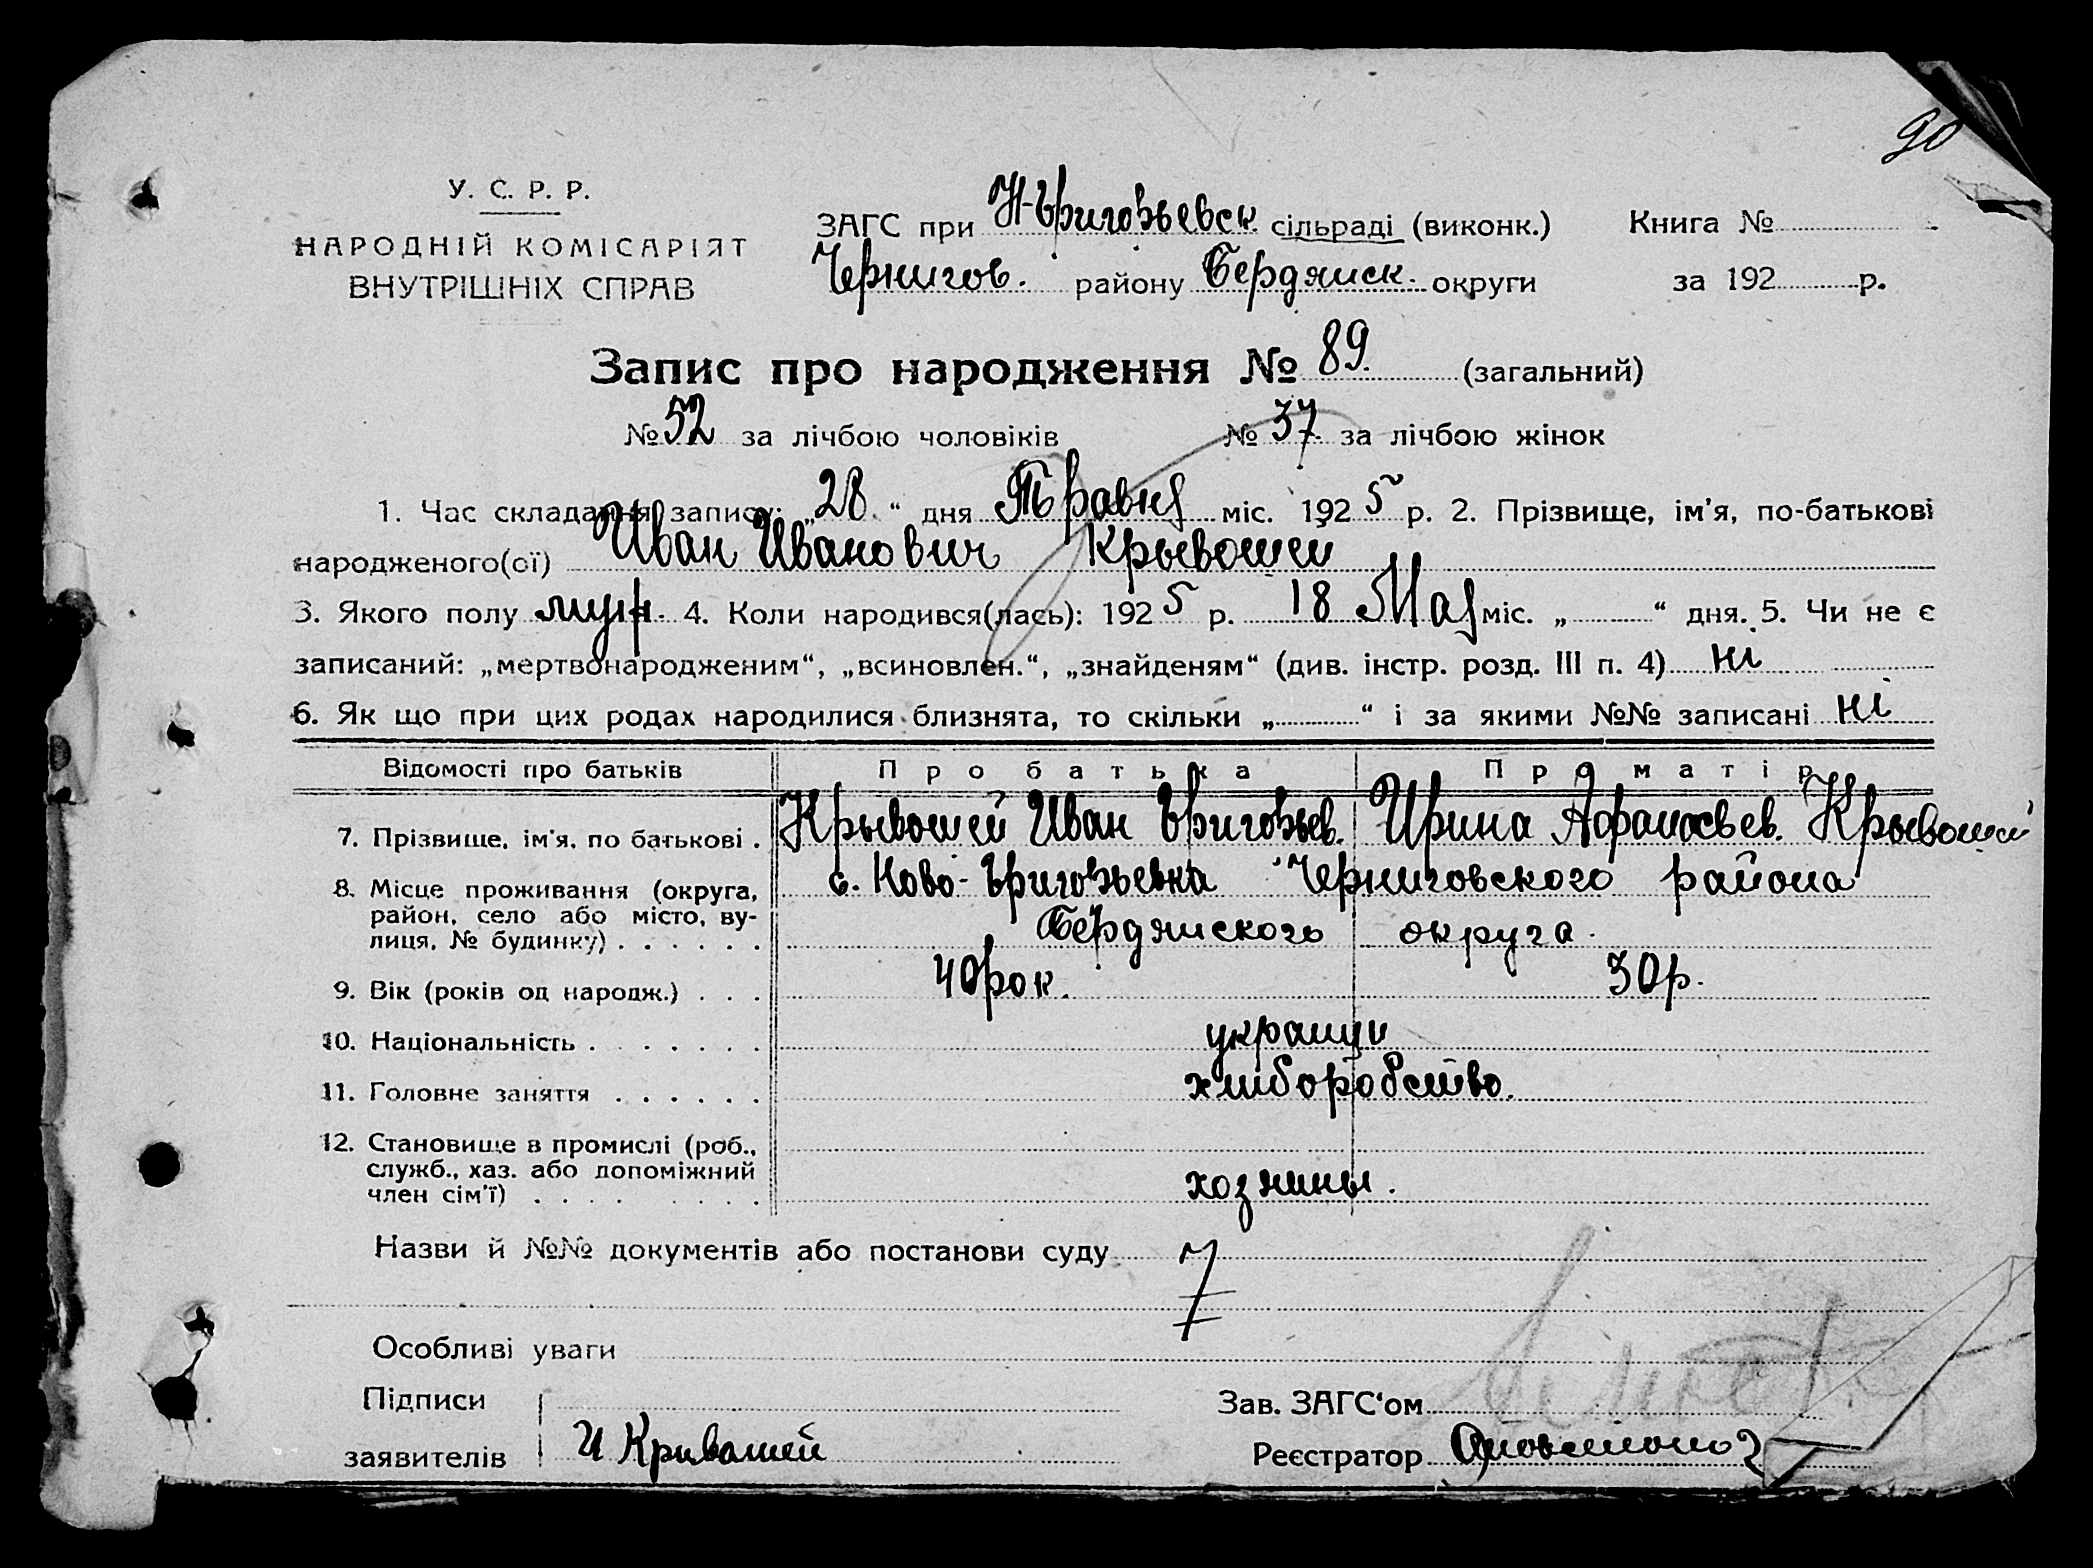 90
У. С. Р. Р.
НАРОДНІЙ КОМІСАРІЯТ
ВНУТРІШНІХ СПРАВ
ЗАГС при Н-Григорьевск. сільраді (виконк.) Книга №
Чернигов. району Бердянск. округи за 192 р.
Запис про народження № 89. (загальний)
№ 52 за лічбою чоловіків № 37 за лічбою жінок
1. Час складання запису: „28“ дня Травня міс. 1925 р. 2. Прізвище, ім'я, по-батькові
народженого(ої) Иван Иванович Крывошей
3. Якого полу муж. 4. Коли народився(лась): 1925 р. 18 Мая міс. „ “ дня. 5. Чи не є
записаний: „мертвонародженим“, „всиновлен.“, „знайденям“ (див. інстр. розд. III п. 4) ні
6. Як що при цих родах народилися близнята, то скільки „ “ і за якими №№ записані ні
Відомості про батьків Про батька Про матір
7. Прізвище, ім'я, по батькові . Крывошей Иван Григорьев. Ирина Афанасьев. Крывошей
8. Місце проживання (округа, с. Ново-Григорьевка Черниговского района
район, село або місто, ву-
лиця, № будинку) . . . . . . Бердянского округа.
9. Вік (років од народж.) . . . 40 рок. 30 р.
10. Національність . . . . . . . украинци
11. Головне заняття . . . . . . хлиборобство.
12. Становище в промислі (роб.,
служб., хаз. або допоміжний
член сім'ї) . . . . . . . . хозяины.
Назви й №№ документів або постанови суду
Особливі уваги
Підписи Зав. ЗАГС‘ом
заявителів И Кривашей Реєстратор